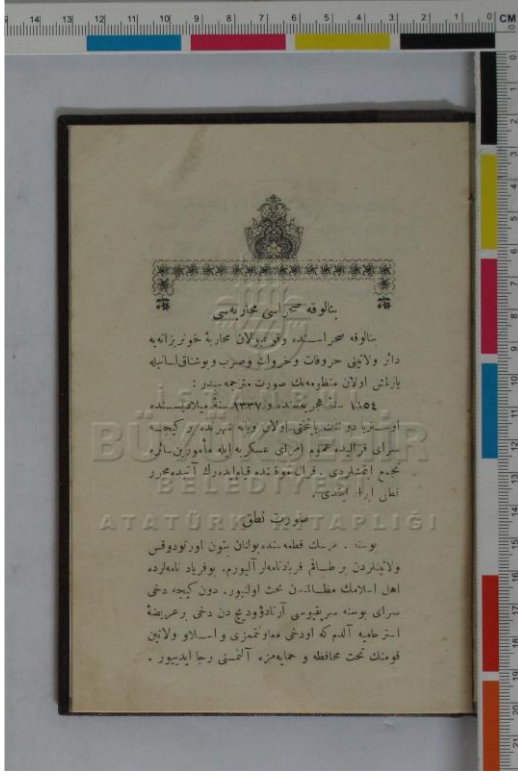 بنالوقه صحراسی محاربه‌سی
بنالوقه صحراسنده وقوعبولان محاربهٔ خونریزانه‌یه
دائر ولاتینی حروفات وخروات وصرب وبوشناق لسانیله
یازلمش اولان منظومه‌نك صورت ترجمه‌سیدر :
سنهٔ هجریه‌سنده و ١٣٣٧ سنهٔ میلادیسنده
دولتنك پایختی اولان ویانه شهرنده بر کیجه
سرای قرالیده عموم امرای عسکریه ایله مأمورین سائره
تجمع ایتمشلردی . قرال موقعنده قیام ایدرك آتیده محرر
نطقی ایراد ایتدی .
صورت نطق
بوسنه . هرسك قطعه‌سنده بولنان بتون اورتودوقس
ولاتینلردن بر طاقم فریادنامه‌لر آلیورم . بوفریادنامه‌لرده
اهل اسلامك مظالمندن بحث اولنیور . دون کیجه دخی
سرای بوسنه سریقپوسی دن دخی برعریضهٔ
استرحامیه آلدم که اودخی معاونتمزی و اسلاو ولاتین
قومنك تحت محافظه و حمایه‌مزه آلنمسنی رجا ایدییور .
İSTANBUL
BÜYÜKŞEHİR
BELEDİYESİ
ATATÜRK KİTAPLIĞI
14 13 12 11 10 9 8 7 6 5 4 3 2 1 0 CM
0 1 2 3 4 5 6 7 8 9 10 11 12 13 14 15 16 17 18 19 20 21